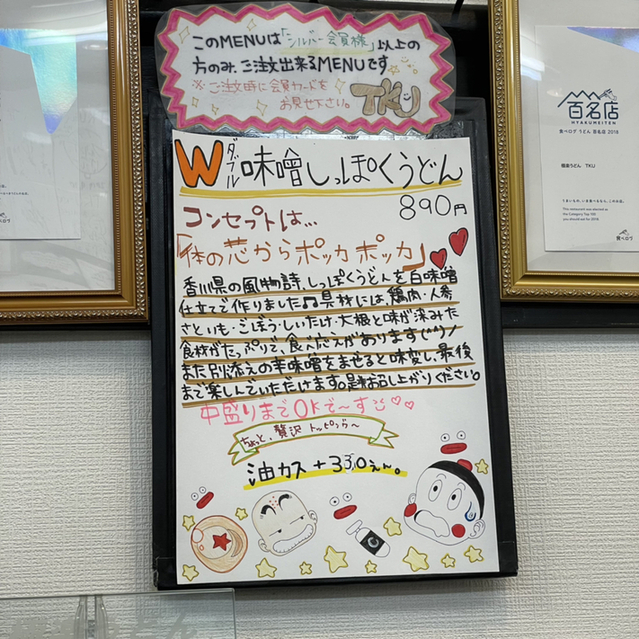 このMENUは「シルバー会員様」以上の
方のみ、ご注文出来るMENUです
※ご注文時に会員カードを
お見せ下さい。
TKU
百名店
HYAKUMEITEN
食べログ うどん 百名店 2018
Wダブル味噌しっぽくうどん
890円
コンセプトは…
「体の芯からポッカポッカ」
香川県の風物詩、しっぽくうどんを白味噌
仕立てで作りました♫具材には、鶏肉・人参
さといも・ごぼう・しいたけ・大根と味が染みた
食材がたっぷりで、食べ応えがあります(^^)ノ
また別添えの辛味噌をまぜると味変し、最後
まで楽しんでいただけます。是非お召し上がりください。
中盛りまでOKで〜す♡♡
ちょっと、贅沢トッピング〜
油カス+330えん。
TKU
This restaurant was elected as
the Category Top 100
you should eat for 2018.
食べログ
食べログ